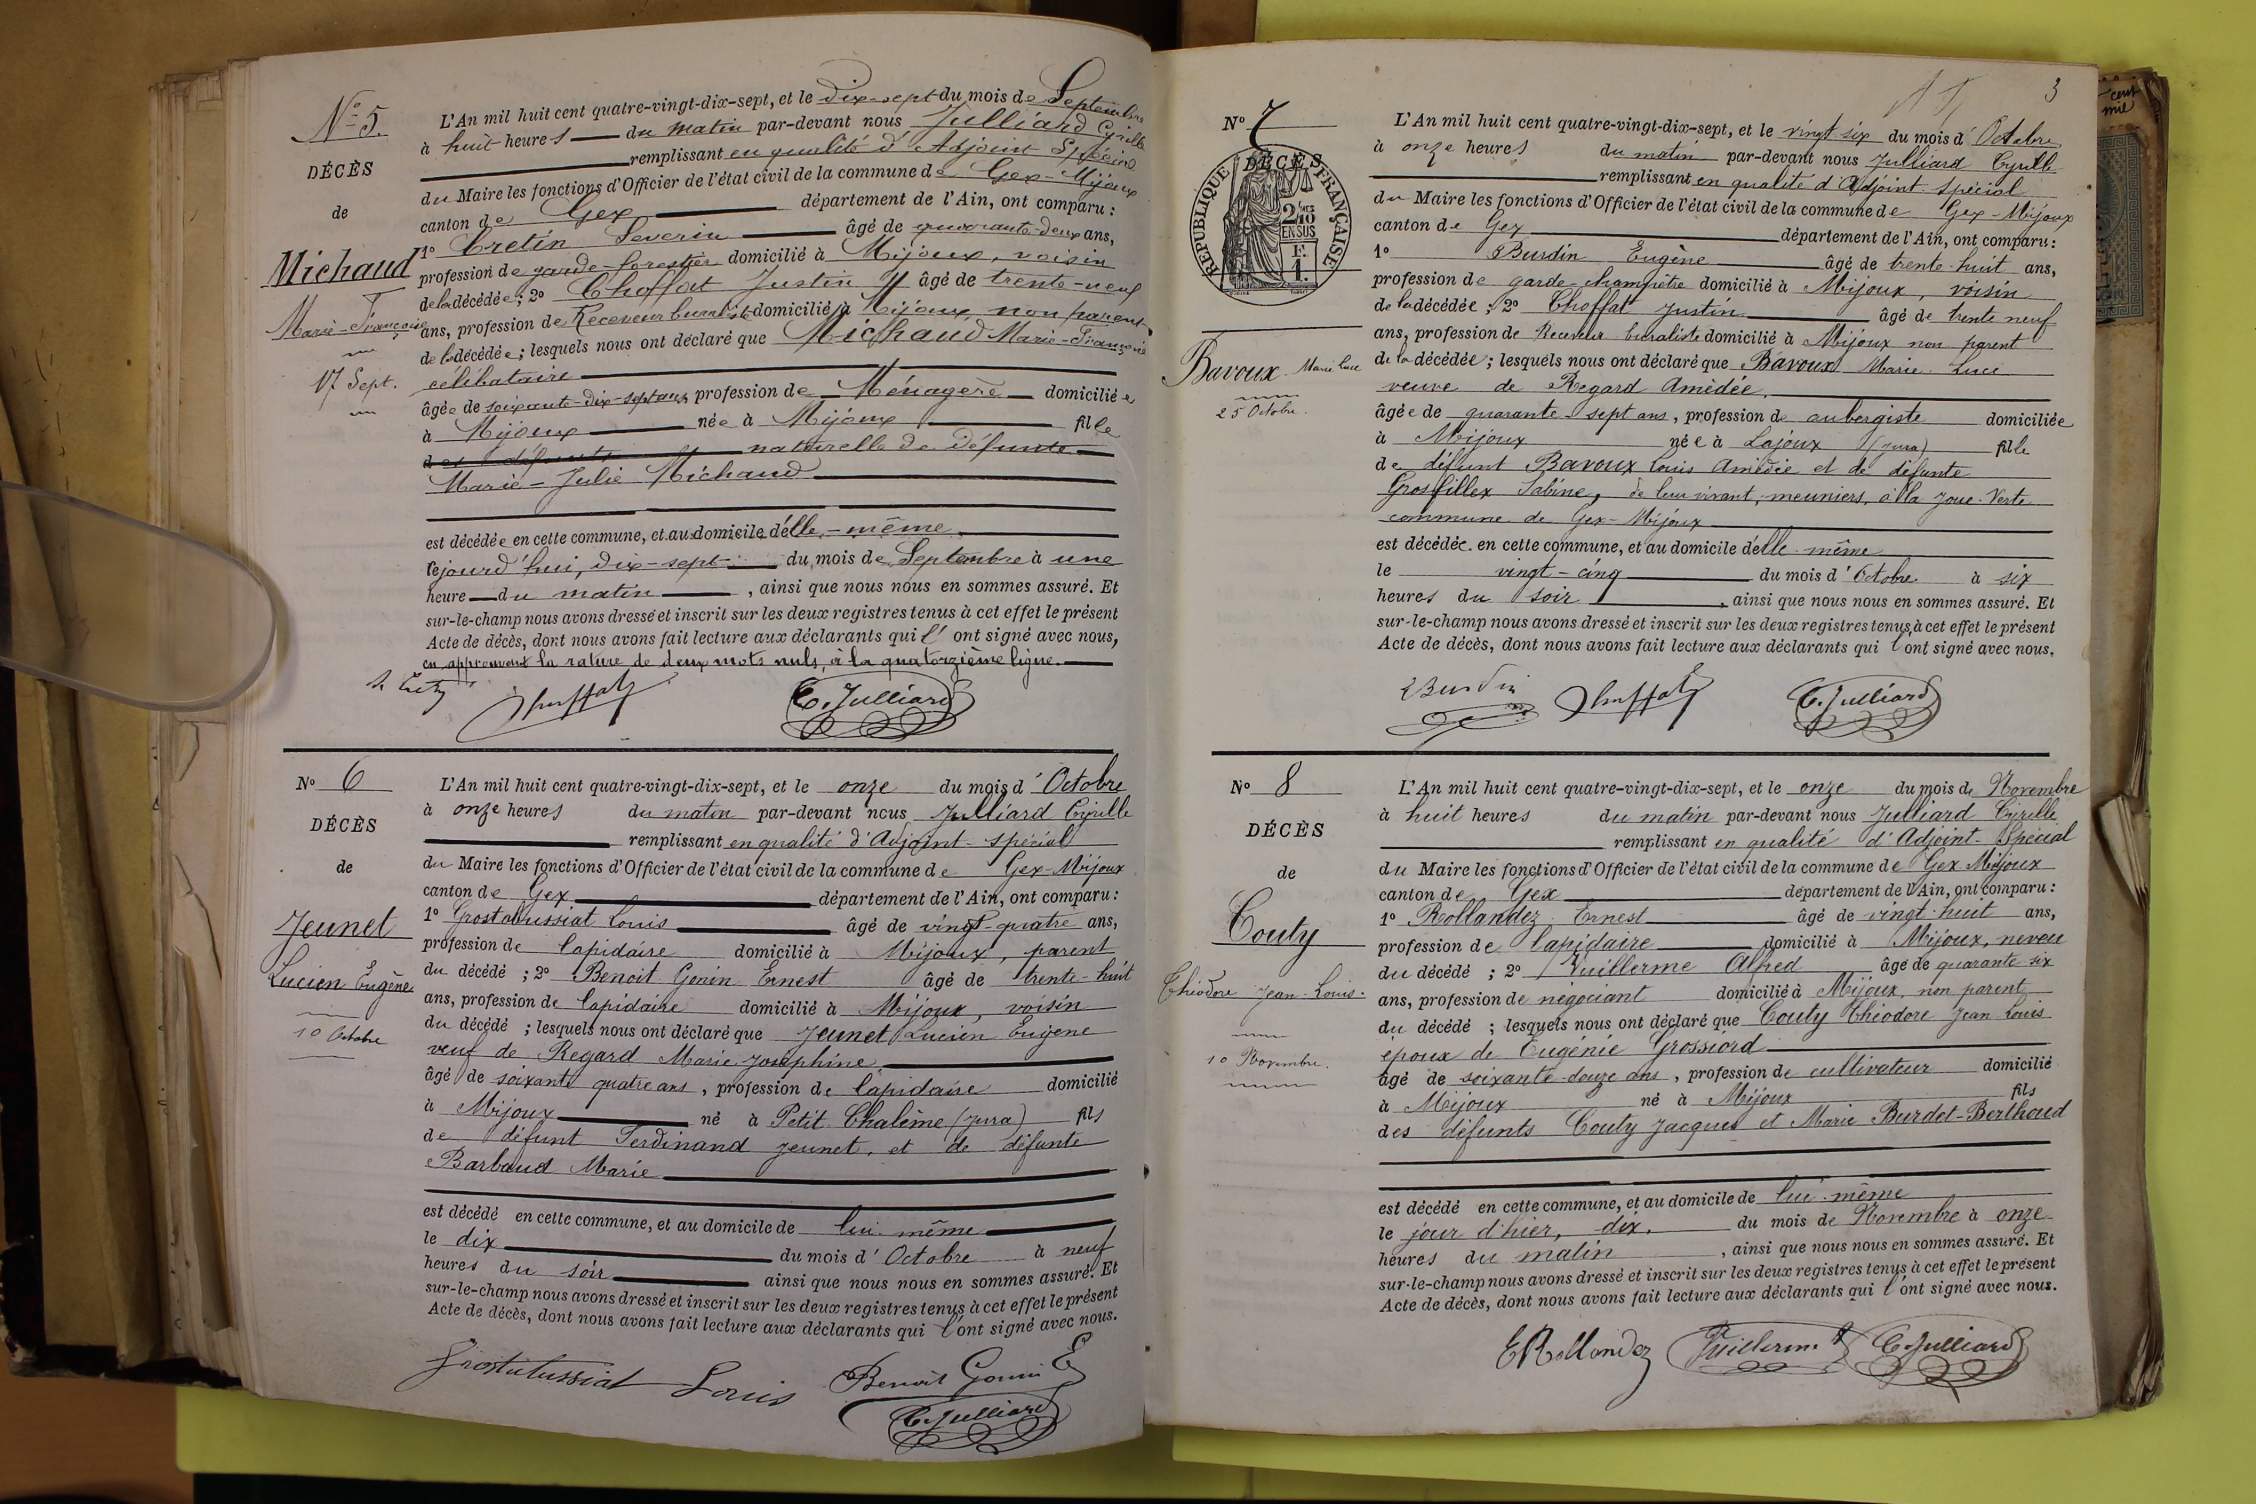 N° 5.
DÉCÈS
de
Michaud
Marie-Françoise
17 Sept.
L'An mil huit cent quatre-vingt-dix-sept, et le dix-sept du mois de Septembre
à huit heures du matin par-devant nous Julliard Cyrille
remplissant en qualité d'Adjoint Spécial
du Maire les fonctions d'Officier de l'état civil de la commune de Gex-Mijoux
canton de Gex département de l'Ain, ont comparu :
1° Cretin Severin âgé de quarante-deux ans,
profession de garde-forestier domicilié à Mijoux, voisin
de la décédée ; 2° Choffat Justin âgé de trente-neuf
ans, profession de Receveur buraliste domicilié à Mijoux, non parent
de la décédée ; lesquels nous ont déclaré que Michaud Marie-Françoise
célibataire
âgée de soixante-dix-sept ans, profession de Ménagère domiciliée
à Mijoux née à Mijoux fille
des défunts naturelle de défunte
Marie-Julie Michaud
est décédée en cette commune, et au domicile d'elle-même
le jourd'hui, dix-sept du mois de Septembre à une
heure du matin, ainsi que nous nous en sommes assuré. Et
sur-le-champ nous avons dressé et inscrit sur les deux registres tenus à cet effet le présent
Acte de décès, dont nous avons fait lecture aux déclarants qui l'ont signé avec nous,
en approuvant la rature de deux mots nuls, à la quatorzième ligne.
Choffat C. Julliard
N° 6
DÉCÈS
de
Jeunet
Lucien Eugène
10 Octobre
L'An mil huit cent quatre-vingt-dix-sept, et le onze du mois d'Octobre
à onze heures du matin par-devant nous Julliard Cyrille
remplissant en qualité d'Adjoint-spécial
du Maire les fonctions d'Officier de l'état civil de la commune de Gex-Mijoux
canton de Gex département de l'Ain, ont comparu :
1° Grostabussiat Louis âgé de vingt-quatre ans,
profession de lapidaire domicilié à Mijoux, parent
du décédé ; 2° Benoit Gonin Ernest âgé de trente-huit
ans, profession de lapidaire domicilié à Mijoux, voisin
du décédé ; lesquels nous ont déclaré que Jeunet Lucien Eugène
veuf de Regard Marie Joséphine
âgé de soixante quatre ans, profession de lapidaire domicilié
à Mijoux né à Petit Chalème (Jura) fils
de défunt Ferdinand Jeunet, et de défunte
Barbaud Marie
est décédé en cette commune, et au domicile de lui-même
le dix du mois d'Octobre à neuf
heures du soir ainsi que nous nous en sommes assuré. Et
sur-le-champ nous avons dressé et inscrit sur les deux registres tenus à cet effet le présent
Acte de décès, dont nous avons fait lecture aux déclarants qui l'ont signé avec nous.
Grostabussiat Louis Benoit Gonin E
C. Julliard
3
N° 7
DÉCÈS
RÉPUBLIQUE FRANÇAISE
2/10 EN SUS
F.
1.
Bavoux Marie Luce
25 Octobre.
L'An mil huit cent quatre-vingt-dix-sept, et le vingt-six du mois d'Octobre
à onze heures du matin par-devant nous Julliard Cyrille
remplissant en qualité d'Adjoint-spécial
du Maire les fonctions d'Officier de l'état civil de la commune de Gex-Mijoux
canton de Gex département de l'Ain, ont comparu :
1° Burdin Eugène âgé de trente-huit ans,
profession de garde-champêtre domicilié à Mijoux, voisin
de la décédée ; 2° Choffat Justin âgé de trente neuf
ans, profession de Receveur buraliste domicilié à Mijoux non parent
de la décédée ; lesquels nous ont déclaré que Bavoux Marie Luce
veuve de Regard Amédée,
âgée de quarante-sept ans, profession de aubergiste domiciliée
à Mijoux née à Lajoux (Jura) fille
de défunt Bavoux Louis Amédée et de défunte
Grosfillex Sabine, de leur vivant, meuniers, à la Joue-Verte
commune de Gex-Mijoux
est décédée en cette commune, et au domicile d'elle-même
le vingt-cinq du mois d'Octobre à six
heures du soir, ainsi que nous nous en sommes assuré. Et
sur-le-champ nous avons dressé et inscrit sur les deux registres tenus à cet effet le présent
Acte de décès, dont nous avons fait lecture aux déclarants qui l'ont signé avec nous.
E Burdin Choffat C. Julliard
N° 8
DÉCÈS
de
Couly
Théodore Jean-Louis.
10 Novembre.
L'An mil huit cent quatre-vingt-dix-sept, et le onze du mois de Novembre
à huit heures du matin par-devant nous Julliard Cyrille
remplissant en qualité d'Adjoint-Spécial
du Maire les fonctions d'Officier de l'état civil de la commune de Gex Mijoux
canton de Gex département de l'Ain, ont comparu :
1° Rollandez Ernest âgé de vingt-huit ans,
profession de lapidaire domicilié à Mijoux, neveu
du décédé ; 2° Vuillerme Alfred âgé de quarante six
ans, profession de négociant domicilié à Mijoux, non parent
du décédé ; lesquels nous ont déclaré que Couly Théodore Jean Louis
époux de Eugénie Grossiord
âgé de soixante-douze ans, profession de cultivateur domicilié
à Mijoux né à Mijoux fils
des défunts Couly Jacques et Marie Burdet-Berthoud
est décédé en cette commune, et au domicile de lui-même
le jour d'hier, dix, du mois de Novembre à onze
heures du matin, ainsi que nous nous en sommes assuré. Et
sur-le-champ nous avons dressé et inscrit sur les deux registres tenus à cet effet le présent
Acte de décès, dont nous avons fait lecture aux déclarants qui l'ont signé avec nous.
E Rollandez Vuillerme A C. Julliard
cent
mil